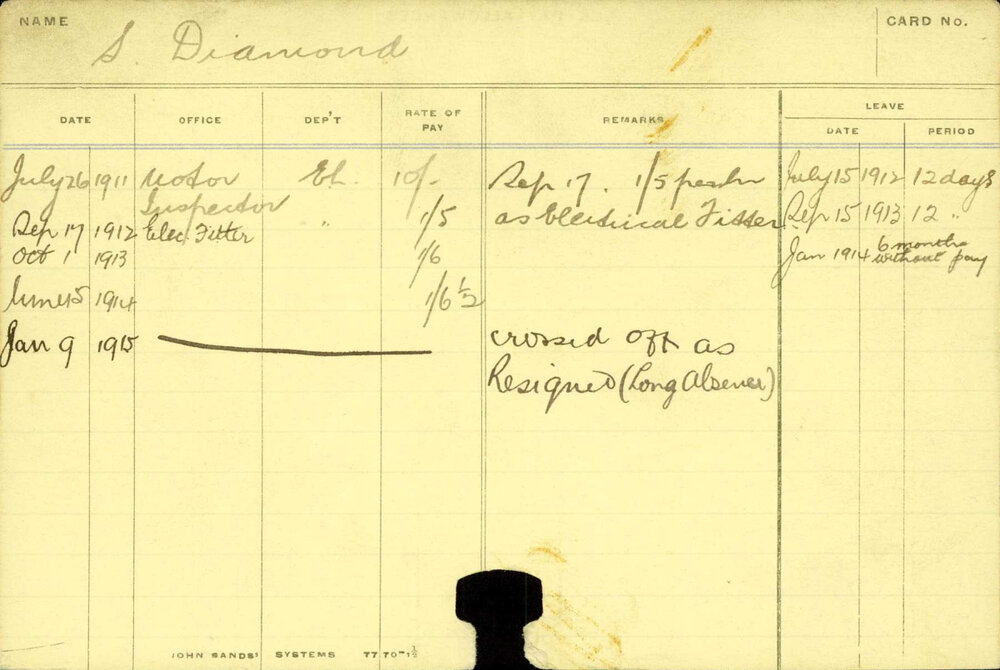 NAME S. Diamond CARD No.
LEAVE
DATE OFFICE DEP'T RATE OF PAY REMARKS DATE PERIOD
July 26 1911 Motor El. 10/- Sep 17. 1/5 per hr July 15 1912 12 days
Inspector
Sep 17 1912 Elec. Fitter " 1/5 as Electrical Fitter Sep 15 1913 12 "
Oct 1 1913 1/6 Jan 1914 6 months without pay
June 15 1914 1/6½
Jan 9 1915 crossed off as
Resigned (Long Absence)
JOHN SANDS' SYSTEMS 7770-1½